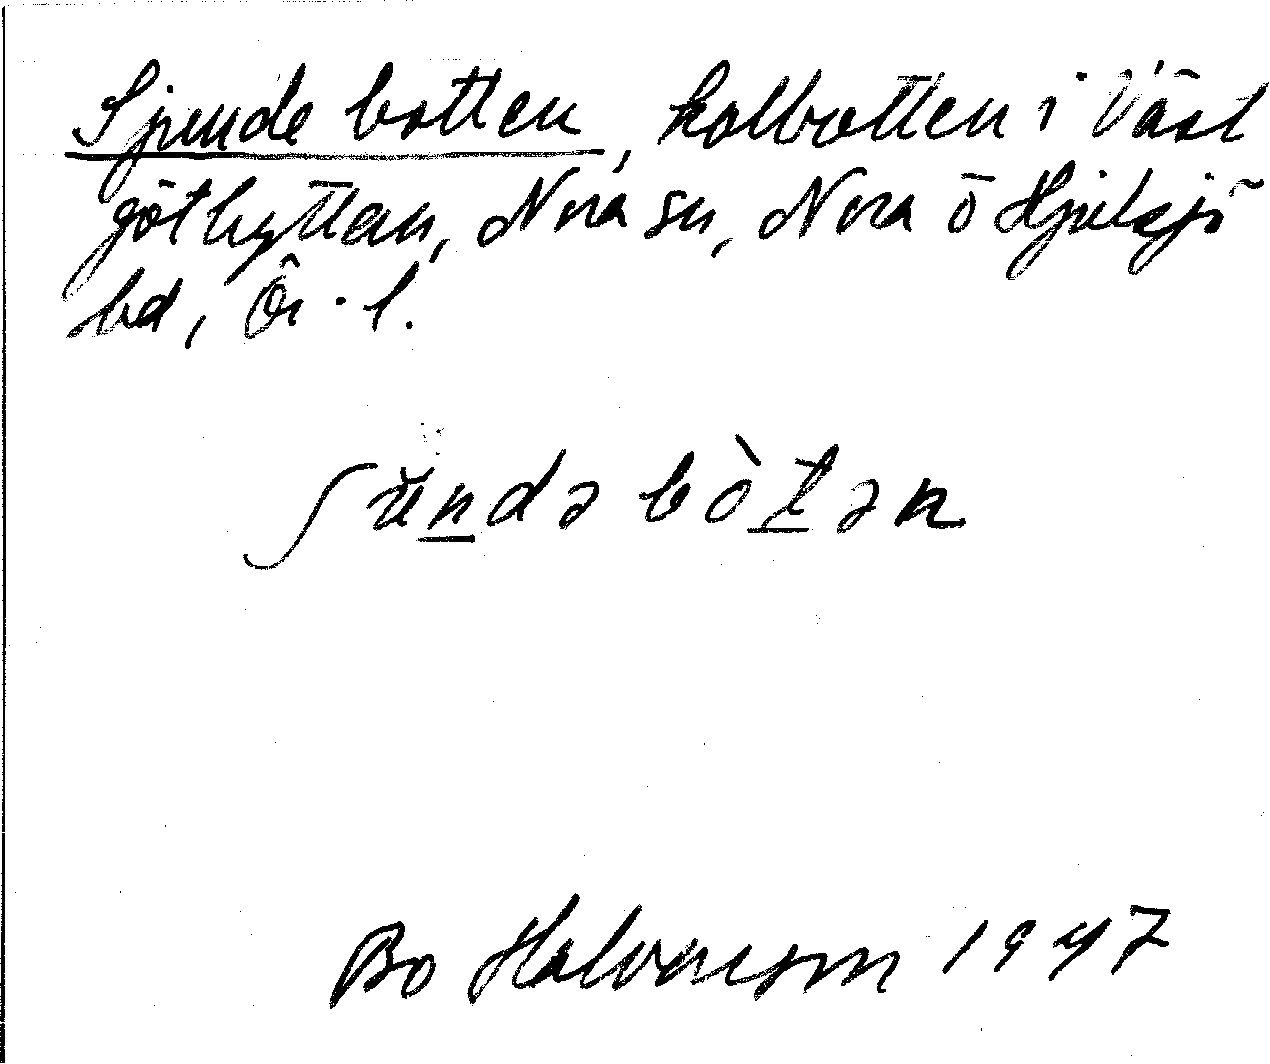 Sjunde botten, kolbotten i Väst
göthyttan, Nora sn, Nora o Hjulsjö
bd, Ör. l.
ʃu̇ndə bòtən
Bo Halvarsson 1947